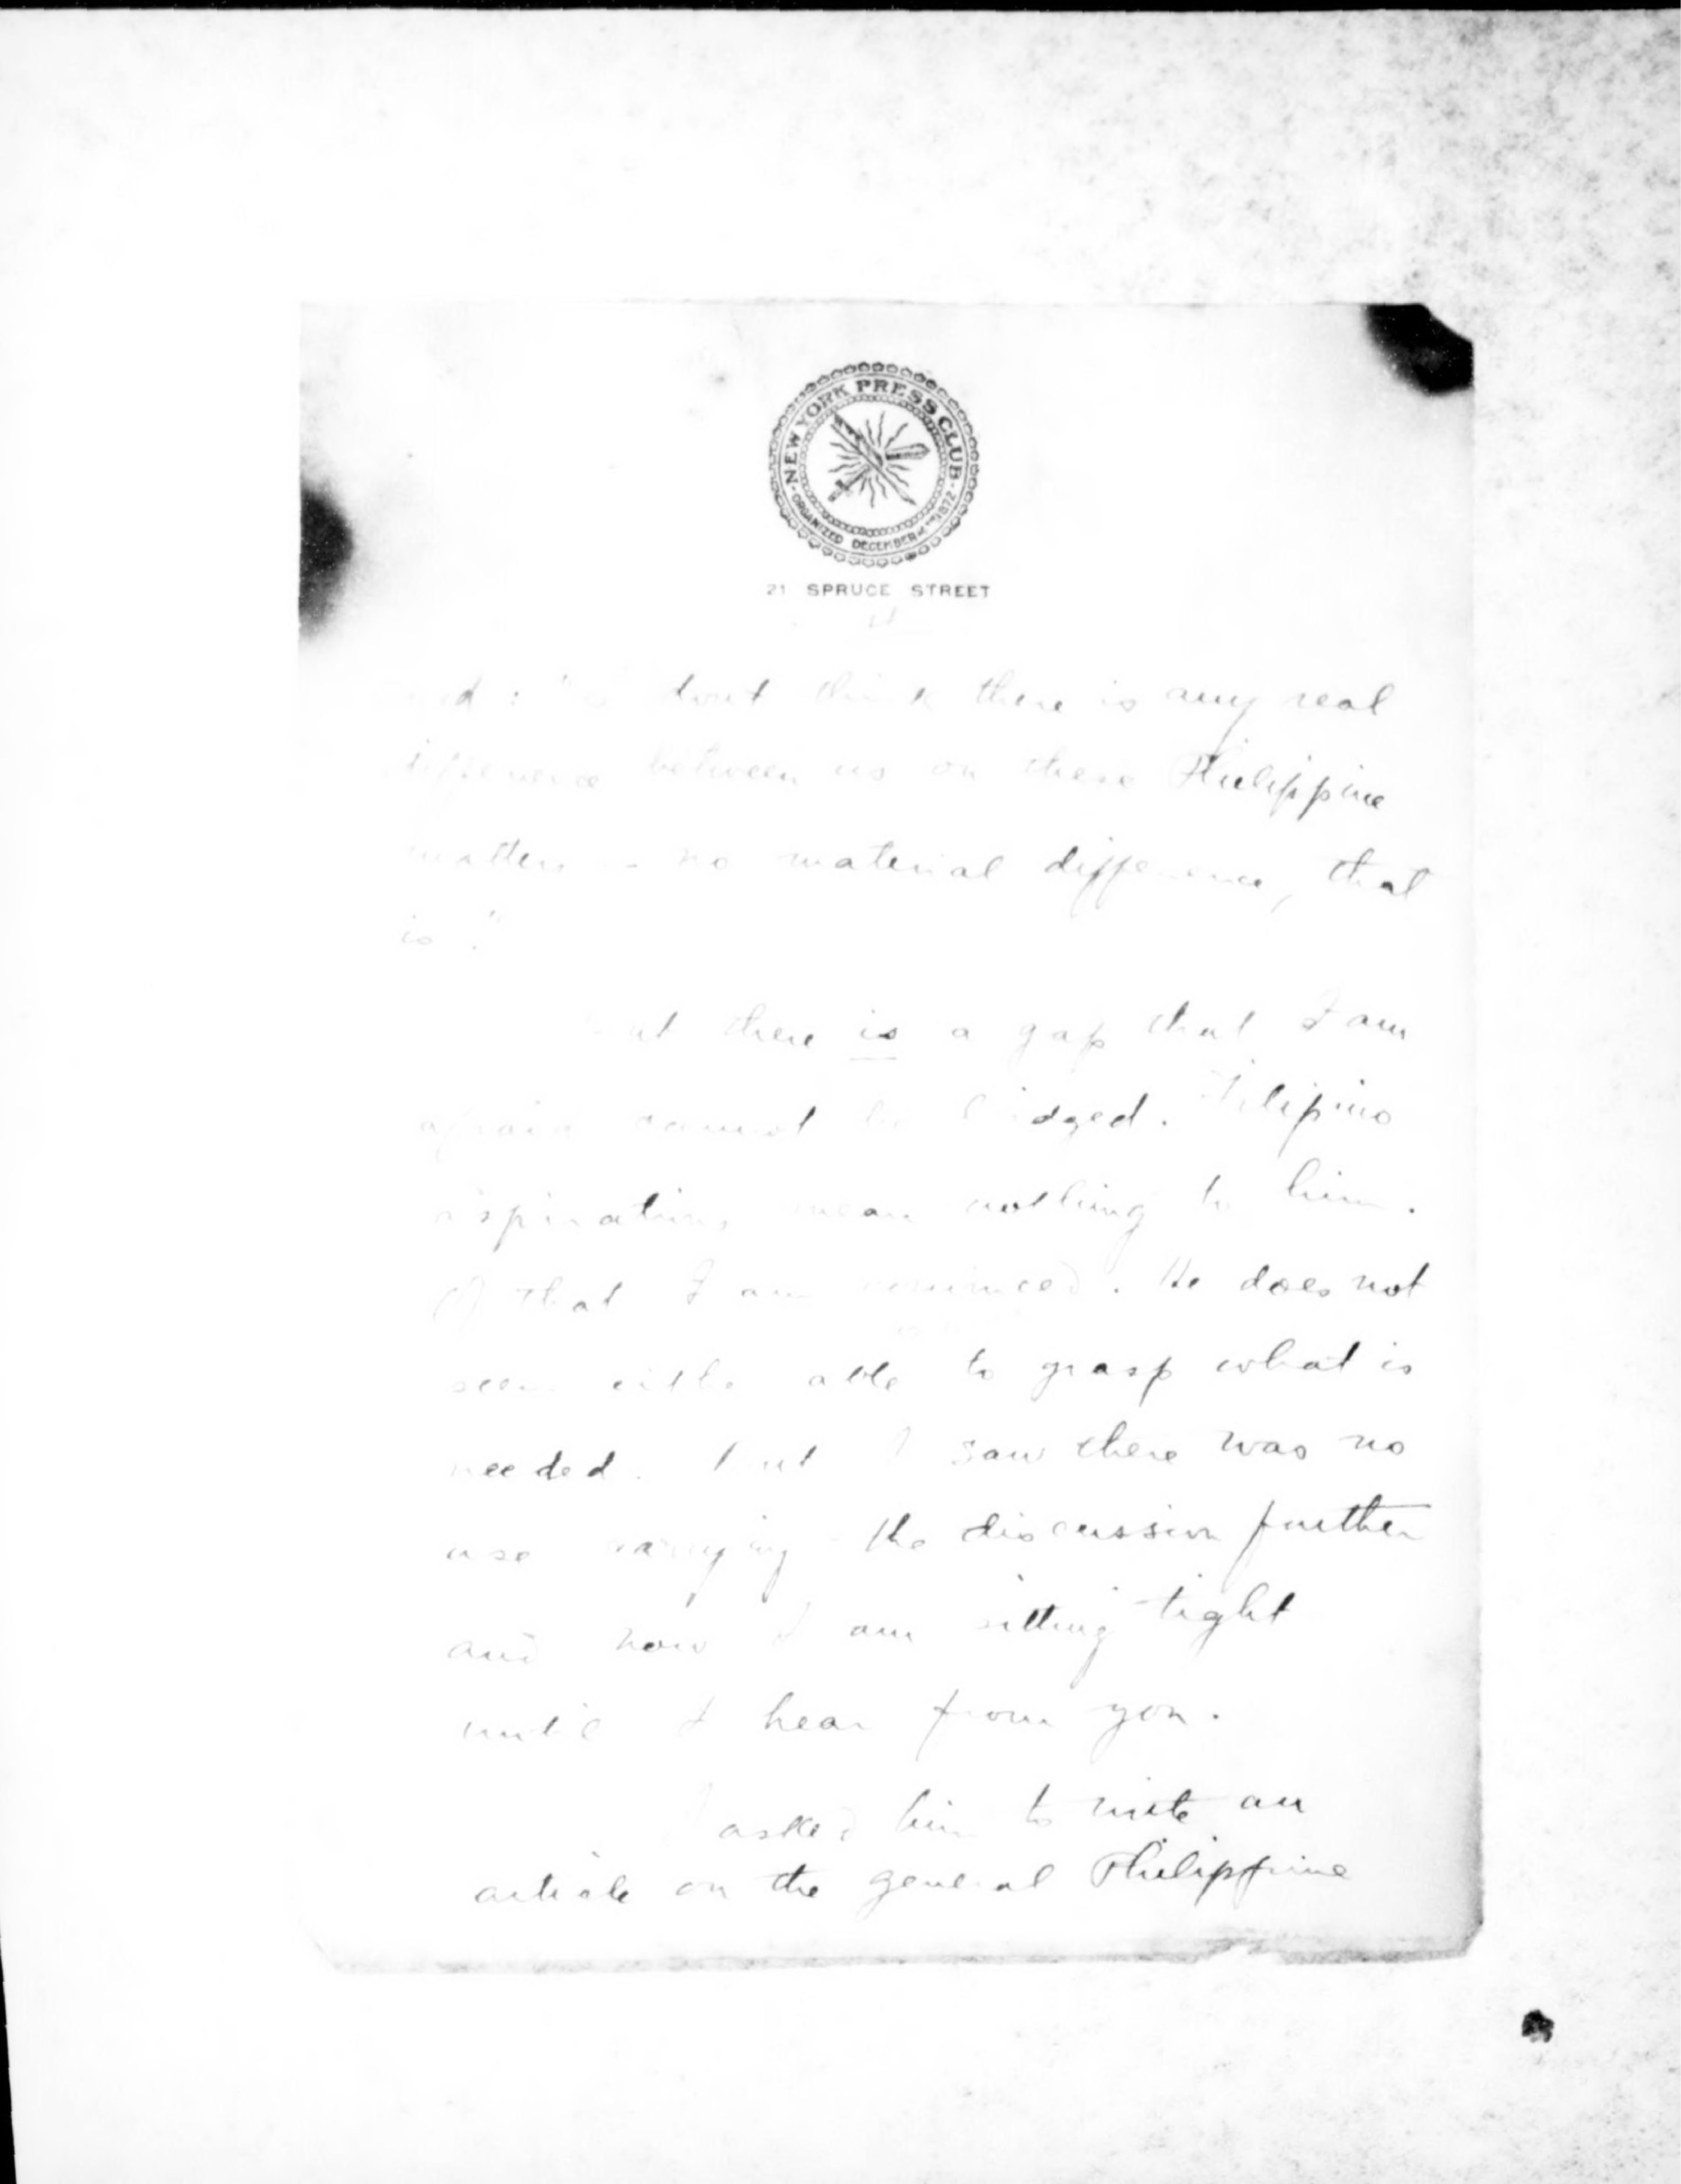 NEW YORK PRESS CLUB
ORGANIZED DECEMBER 1872
21 SPRUCE STREET
dont think there is any real
difference between us on these Philippine
matters – no material difference, that
is."
But there is a gap that I am
afraid cannot be bridged. Filipino
aspirations mean nothing to him.
Of that I am convinced. He does not
seem able to grasp what is
needed. But I saw there was no
use carrying the discussion further
and now I am sitting tight
until I hear from you.
I asked him to write an
article on the general Philippine